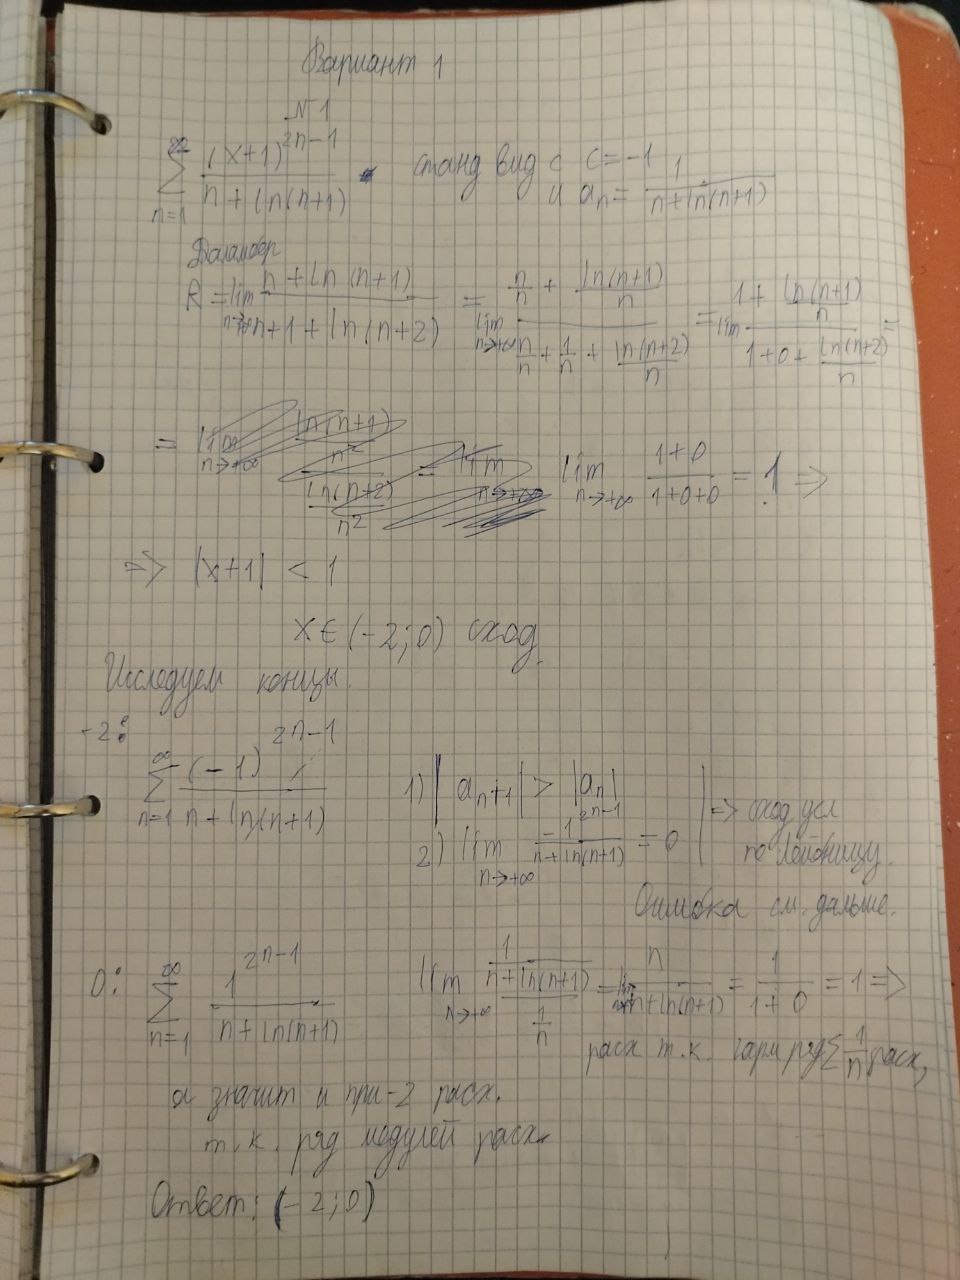 Вариант 1
№1
∑_{n=1}^{∞} (x+1)^{2n-1} / (n + ln(n+1)) станд вид с c = -1
и a_n = 1 / (n+ln(n+1))
Даламбер
R = lim_{n→+∞} (n + ln(n+1)) / (n+1+ln(n+2)) = lim_{n→+∞} (n/n + ln(n+1)/n) / (n/n + 1/n + ln(n+2)/n) = lim (1 + ln(n+1)/n) / (1+0+ ln(n+2)/n) =
= lim_{n→+∞} (ln(n+1)/n²) / (ln(n+2)/n²) = lim_{n→+∞} lim_{n→+∞} (1+0) / (1+0+0) = 1 ⇒
⇒ |x+1| < 1
x ∈ (-2; 0) сход.
Исследуем концы.
-2:
∑_{n=1}^{∞} (-1)^{2n-1} / (n + ln(n+1)) 1) |a_{n+1}| > |a_n|
2) lim_{n→+∞} -1^{2n-1} / (n+ln(n+1)) = 0 | ⇒ сход усл
по Лейбницу.
Ошибка см. дальше.
0: ∑_{n=1}^{∞} 1^{2n-1} / (n+ln(n+1)) lim_{n→+∞} (1 / (n+ln(n+1))) / (1/n) = lim_{n→+∞} n / (n+ln(n+1)) = 1 / (1+0) = 1 ⇒
расх т.к. гарм ряд ∑ 1/n расх,
а значит и при -2 расх.
т.к. ряд модулей расх.
Ответ: (-2; 0)